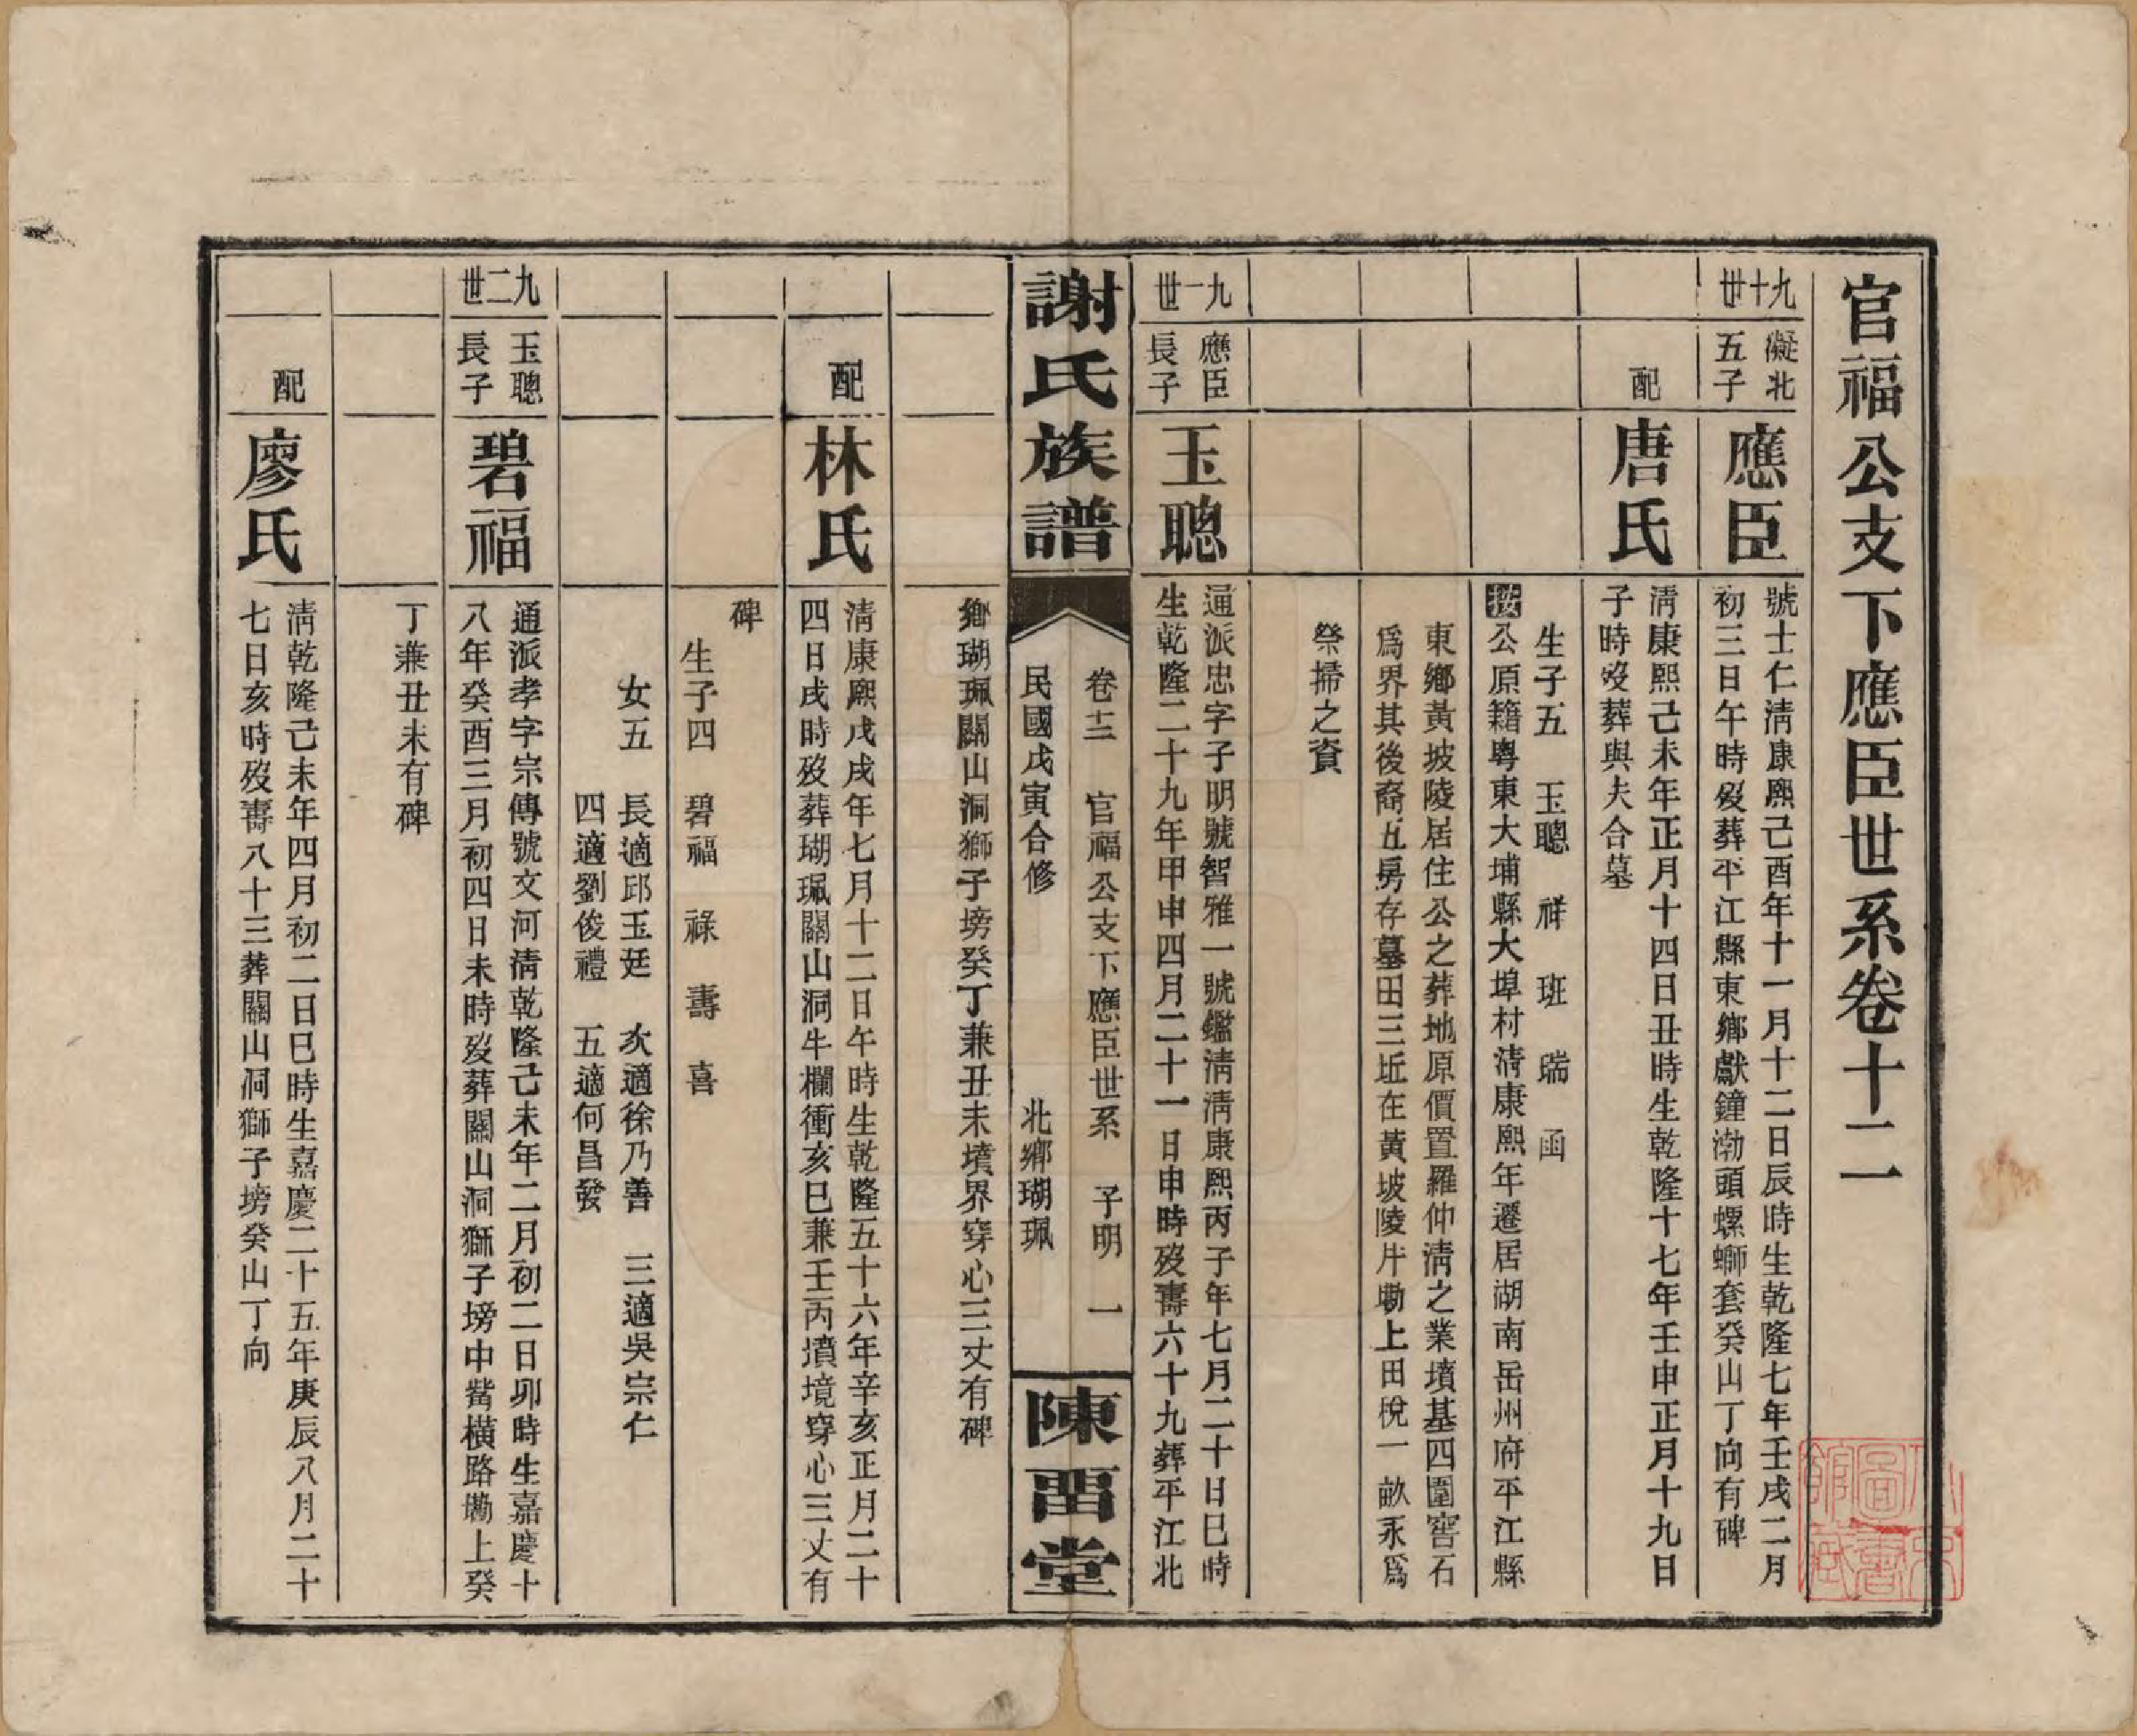 官福公支下應臣世系卷十二
九十世
凝北
五子
應臣
號士仁淸康熙己酉年十一月十二日辰時生乾隆七年壬戌二月
初三日午時歿葬平江縣東鄉獻鐘渤頭螺螄套癸山丁向有碑
配
唐氏
淸康熙己未年正月十四日丑時生乾隆十七年壬申正月十九日
子時歿葬與夫合墓
生子五 玉聰 祥 班 瑞 函
按公原籍粵東大埔縣大埠村淸康熙年遷居湖南岳州府平江縣
東鄉黃坡陵居住公之葬地原價置羅仲淸之業墳基四圍窖石
爲界其後裔五房存墓田三坵在黃坡陵片墈上田稅一畝永爲
祭掃之資
九一世
應臣
長子
玉聰
通派忠字子明號智雅一號鑑淸淸康熙丙子年七月二十日巳時
生乾隆二十九年甲申四月二十一日申時歿壽六十九葬平江北
謝氏族譜
卷十二 官福公支下應臣世系 子明 一
民國戊寅合修 北鄉瑚珮
陳畱堂
鄉瑚珮關山洞獅子塝癸丁兼丑未墳界穿心三丈有碑
配
林氏
淸康熙戊戌年七月十二日午時生乾隆五十六年辛亥正月二十
四日戌時歿葬瑚珮關山洞牛欄衝亥巳兼壬丙墳境穿心三丈有
碑
生子四 碧福 祿 壽 喜
女五 長適邱玉廷 次適徐乃善 三適吳宗仁
四適劉俊禮 五適何昌發
九二世
玉聰
長子
碧福
通派孝字宗傳號文河淸乾隆己未年二月初二日卯時生嘉慶十
八年癸酉三月初四日未時歿葬關山洞獅子塝中嵤橫路墈上癸
丁兼丑未有碑
配
廖氏
淸乾隆己未年四月初二日巳時生嘉慶二十五年庚辰八月二十
七日亥時歿壽八十三葬關山洞獅子塝癸山丁向